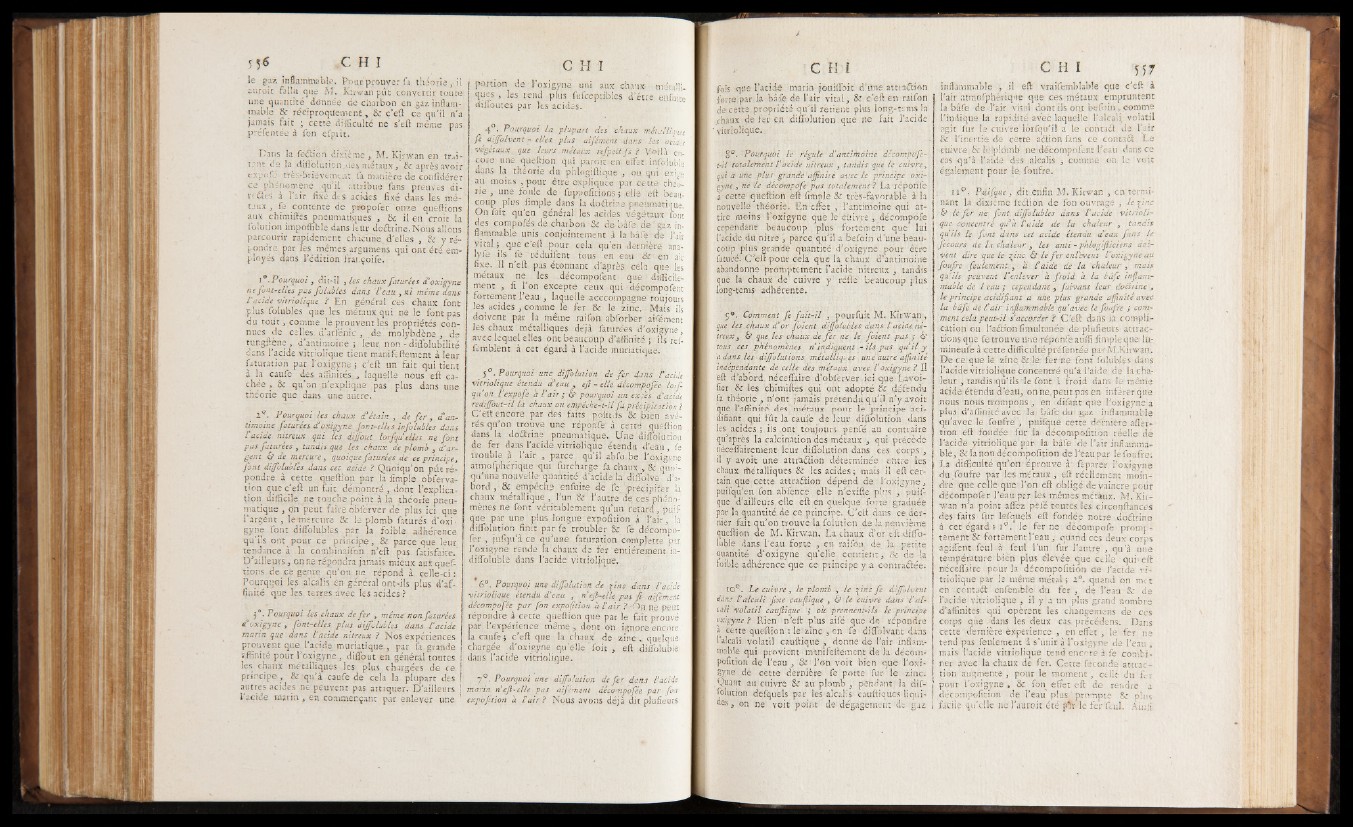 556 C H I
le gaz inflammable. Pour prouver sa théorie, il
auroit fallu que M. Kirwan pût convertir toute
une quantité donnée de charbon en gaz inflam-
mable & réciproquement, & c'est ce qu'il n'a
jamais fait ; cette difficulté ne s'est même pas
présentée à son esprit.
Dans la section dixième, M. Kirwan en trai-
tant de la dissolution des métaux, & après avoir
exposé très-brièvement sa manière de considérer
ce phénomène qu'il attribue sans preuves di-
rectes à l'air fixé des acides fixé dans les mé-
taux, se contente de proposer onze questions
aux chimistes pneumatiques, & il en croit la
solution impossible dans leur doctrine. Nous allons
parcourir rapidement chacune d'elles, & y ré-
pondre par les mêmes argumens qui ont été em-
ployés dans l'édition françoise.
1°. Pourquoi, dit-il, les chaux saturées d'oxigyne
ne sont-elles pas solubles dans l'eau, ni même dans
l'acide vitriolique ? En général ces chaux sont
plus solubles que les métaux qui ne le sont pas
du tout, comme le prouvent les propriétés con-
nues de celles d'arsenic, de molybdène, de
tungstene, d'antimoine ; leur non-dissolubilité
dans l'acide vitriolique tient manifestement à leur
saturation par l'oxigyne ; c'est un fait qui tient
à la cause des affinités, laquelle nous est ca-
chée, & qu'on n'explique pas plus dans une
théorie que dans une autre.
2°. Pourquoi les chaux d'étain, de fer, d'an-
timoine saturées d'oxigyne sont-elles insolubles dans
l'acide nitreux qui les dissout lorsqu'elles ne sont
pas saturées, tandis que les chaux de plomb, d'ar-
gent & de mercure, quoique saturées de ce principe,
sont dissolubles dans cet acide ? Quoiqu'on pût ré-
pondre à cette question par la simple observa-
tion que c'est un fait démontré, dont l'explica-
tion difficile ne touche point à la théorie pneu-
matique, on peut faire observer de plus ici que
l'argent, le mercure & le plomb saturés d'oxi-
gyne sont dissolubles par la foible adhérence
qu'ils ont pour ce principe, & parce que leur
tendance à la combinaison n'est pas satisfaite.
D'ailleurs, on ne répondra jamais mieux aux ques-
tions de ce genre qu'on ne répond à celle-ci :
Pourquoi les alcalis en général ont-ils plus d'af-
finité que les terres avec les acides ?
3°. Pourquoi les chaux de fer, même non saturées
d'oxigyne, sont-elles plus dissolubles dans l'acide
marin que dans l'acide nitreux ? Nos expériences
prouvent que l'acide muriatique, par sa grande
affinité pour l'oxigyne, dissout en général toutes
les chaux métalliques les plus chargées de ce
principe, & qu'à cause de cela la plupart des
autres acides ne peuvent pas attaquer. D'ailleurs
l'acide marin, en commençant par enlever une
C H I
portion de l'oxigyne uni aux chaux métalli-
ques, les rend plus susceptibles d'être ensuite
dissoutes par les acides.
4°. Pourquoi la plupart des chaux métalliques
se dissolvent-elles plus aisément dans les acides
végétaux, que leurs métaux respectifs ? Voilà en-
core une question qui paroit en effet insoluble
dans la théorie du phlogistique, ou qui exige
au moins, pour être expliquée par cette théo-
rie, une foule de suppositions ; elle est beau-
coup plus simple dans la doctrine pneumatique.
On sait qu'en général les acides végétaux sont
des composés de charbon & de base de gaz in-
flammable unis conjointement à la base de l'air
vital ; que c'est pour cela qu'en dernière ana-
lyse ils se réduisent tous en eau & en air
fixe. Il n'est pas étonnant d'après cela que les
métaux ne les décomposent que difficile-
ment, si l'on excepte ceux qui décomposent
fortement l'eau, laquelle acccompagne toujours
les acides, comme le fer & le zinc. Mais ils
doivent par la même raison absorber aisément
les chaux métalliques déjà saturées d'oxigyne,
avec lequel elles ont beaucoup d'affinité ; ils res-
semblent à cet égard à l'acide muriatique.
5°. Pourquoi une dissolution de fer dans l'acide
vitriolique étendu d'eau, est-elle décomposée lors-
qu'on l'expose à l'air ; & pourquoi un excès d'acide
redissout-il la chaux ou empêche-t-il sa précipitation ?
C'est encore par des faits positifs & bien avé-
rés qu'on trouve une réponse à cette question
dans la doctrine pneumatique. Une dissolution
de fer dans l'acide vitriolique étendu d'eau, se
trouble à l'air, parce qu'il absorbe l'oxigyne
atmosphérique qui surcharge sa chaux, & quoi-
qu'une nouvelle quantité d'acide la dissolve d'a-
bord, & empêche ensuite de se précipiter la
chaux métallique, l'un & l'autre de ces phéno-
mènes ne sont véritablement qu'un retard, puis-
que par une plus longue exposition à l'air, la
dissolution finit par se troubler & se décompo-
ser, jusqu'à ce qu'une saturation complette par
l'oxigyne rende la chaux de fer entièrement in-
dissoluble dans l'acide vitriolique.
6°. Pourquoi une dissolution de zinc dans l'acide
vitriolique étendu d'eau, n'est-elle pas si aisément
décomposée par son exposition à l'air ? On ne peut
répondre à cette question que par le fait prouvé
par l'expérience même, dont on ignore encore
la cause ; c'est que la chaux de zinc, quelque
chargée d'oxigyne qu'elle soit, est dissoluble
dans l'acide vitriolique.
7°. Pourquoi une dissolution de fer dans l'acide
marin n'est-elle pas aisément décomposée par son
exposition à l'air ? Nous avons déjà dit plusieurs
C H I
fois que l'acide marin jouissoit d'une attraction
forte par la base de l'air vital, & c'est en raison
de cette propriété qu'il retient plus long-tems la
chaux de fer en dissolution que ne fait l'acide
vitriolique.
8°. Pourquoi le régule d'antimoine décompose-
t-il totalement l'acide nitreux, tandis que le cuivre,
qui a une plus grande affinité avec le principe oxi-
gyne, ne le décompose pas totalement ? La réponse
à cette question est simple & très-favorable à la
nouvelle théorie. En effet, l'antimoine qui at-
tire moins l'oxigyne que le cuivre, décompose
cependant beaucoup plus fortement que lui
l'acide du nitre, parce qu'il a besoin d'une beau-
coup plus grande quantité d'oxigyne pour être
saturé. C'est pour cela que la chaux d'antimoine
abandonne promptement l'acide nitreux, tandis
que la chaux de cuivre y reste beaucoup plus
long-tems adhérente.
9°. Comment se fait-il, poursuit M. Kirwan,
que les chaux d'or soient dissolubles dans l'acide ni-
treux, & que les chaux de fer ne le soient pas ; &
tous ces phénomènes n'indiquent-ils pas qu'il y
a dans les dissolutions métalliques une autre affinité
indépendante de celle des métaux avec l'oxigyne ? Il
est d'abord nécessaire d'observer ici que Lavoi-
sier & les chimistes qui ont adopté & défendu
sa théorie, n'ont jamais prétendu qu'il n'y avoit
que l'affinité des métaux pour le principe aci-
difiant qui fût la cause de leur dissolution dans
les acides ; ils ont toujours pensé au contraire
qu'après la calcination des métaux, qui précède
nécessairement leur dissolution dans ces corps,
il y avoit une attraction déterminée entre les
chaux métalliques & les acides ; mais il est cer-
tain que cette attraction dépend de l'oxigyne,
puisqu'en son absence elle n'existe plus, puis-
que d'ailleurs elle est en quelque sorte graduée
par la quantité de ce principe. C'est dans ce der-
nier fait qu'on trouve la solution de la neuvième
question de M. Kirwan. La chaux d'or est disso-
luble dans l'eau forte, en raison de la petite
quantité d'oxigyne qu'elle contient, & de la
foible adhérence que ce principe y a contractée.
10°. Le cuivre, le plomb, le zinc se dissolvent
dans l'alcali fixe caustique, & le cuivre dans l'al-
cali volatil caustique ; où prennent-ils le principe
oxigyne ? Rien n'est plus aisé que de répondre
à cette question : le zinc, en se dissolvant dans
l'alcali volatil caustique, donne de l'air inflam-
mable qui provient manifestement de la décom-
position de l'eau, & l'on voit bien que l'oxi-
gyne de cette dernière se porte sur le zinc.
Quant au cuivre & au plomb, pendant la dis-
solution desquels par les alcalis caustiques liqui-
des, on ne voit point de dégagement de gaz
C H I 557
inflammable, il est vraisemblable que c'est à
l'air atmosphérique que ces métaux empruntent
la base de l'air vital dont ils ont besoin, comme
l'indique la rapidité avec laquelle l'alcali volatil
agit sur le cuivre lorsqu'il a le contact de l'air
& l'inertie de cette action sans ce contact. Le
cuivre & le plomb ne décomposent l'eau dans ce
cas qu'à l'aide des alcalis, comme on le voit
également pour le soufre.
11°. Puisque, dit enfin M. Kirwan, en termi-
nant la dixième section de son ouvrage, le zinc
& le fer ne sont dissolubles dans l'acide vitrioli-
que concentré qu'à l'aide de la chaleur, tandis
qu'ils le sont dans cet acide étendu d'eau sans le
secours de la chaleur, les anti-phlogisticiens doi-
vent dire que le zinc & le fer enlèvent l'oxigyne au
soufre seulement, à l'aide de la chaleur, mais
qu'ils peuvent l'enlever à froid à la base inflam-
mable de l'eau ; cependant, suivant leur doctrine,
le principe acidifiant a une plus grande affinité avec
la base de l'air inflammable qu'avec le soufre ; com-
ment cela peut-il s'accorder ? C'est dans la compli-
cation ou l'action simultanée de plusieurs attrac-
tions que se trouve une réponse aussi simple que lu-
mineuse à cette difficulté présentée par M. Kirwan.
De ce que le zinc & le fer ne sont solubles dans
l'acide vitriolique concentré qu'à l'aide de la cha-
leur, tandis qu'ils le sont à froid dans le même
acide étendu d'eau, on ne peut pas en inférer que
nous nous trompons, en disant que l'oxigyne a
plus d'affinité avec la base du gaz inflammable
qu'avec le soufre, puisque cette dernière asser-
tion est fondée sur la décomposition réelle de
l'acide vitriolique par la base de l'air inflamma-
ble, & la non décomposition de l'eau par le soufre.
La difficulté qu'on éprouve à séparer l'oxigyne
du soufre par les métaux, est réellement moin-
dre que celle que l'on est obligé de vaincre pour
décomposer l'eau par les mêmes métaux. M. Kir-
wan n'a point assez pesé toutes les circonstances
des faits sur lesquels est fondée notre doctrine
à cet égard : 1°. le fer ne décompose promp-
tement & fortement l'eau, quand ces deux corps
agissent seul à seul l'un sur l'autre, qu'à une
température bien plus élevée que celle qui est
nécessaire pour la décomposition de l'acide vi-
triolique par le même métal ; 2°. quand on met
en contact ensemble du fer, de l'eau & de
l'acide vitriolique, il y a un plus grand nombre
d'affinités qui opèrent les changemens de ces
corps que dans les deux cas précédens. Dans
cette dernière expérience, en effet, le fer ne
tend pas seulement à s'unir à l'oxigyne de l'eau,
mais l'acide vitriolique tend encore à se combi-
ner avec la chaux de fer. Cette seconde attrac-
tion augmente, pour le moment, celle du fer
pour l'oxigyne, & son effet est de rendre la
décomposition de l'eau plus prompte & plus
facile qu'elle ne l'auroit été par le fer seul. Ainsi